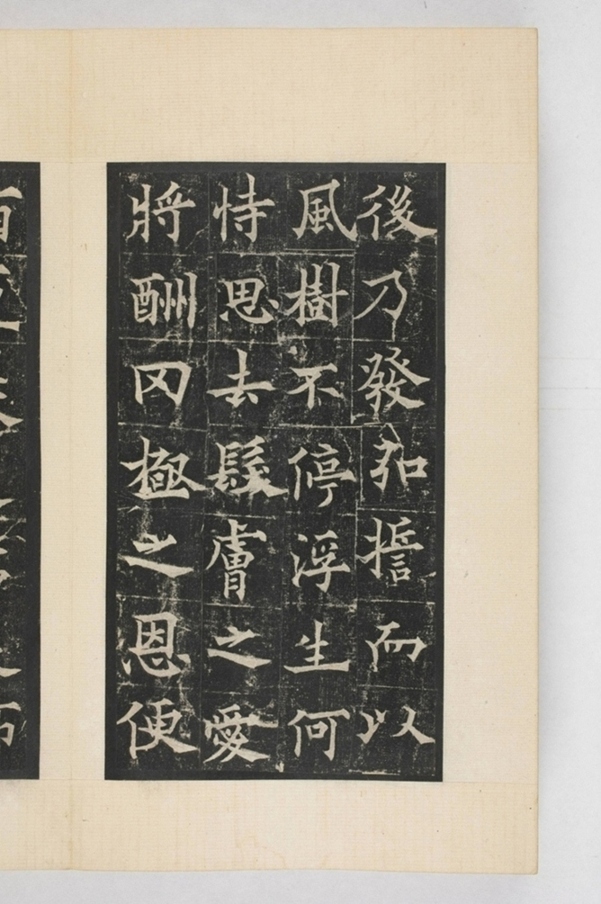 後乃發弘誓而以
風樹不停浮生何
恃思去髮膚之愛
將酬罔極之恩便